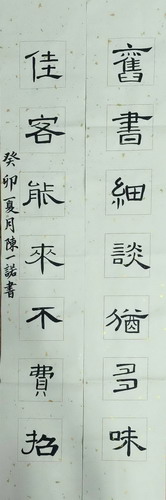 舊書細談猶多味
佳客能來不費招
癸卯夏月陳一諾書